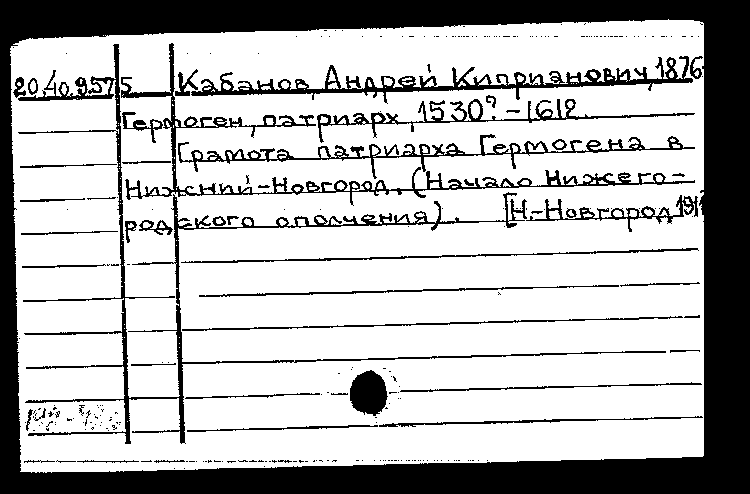 20.40.9.575 Кабанов, Андрей Киприанович, 1876-
Гермоген, патриарх, 1530?-1612.
Грамота патриарха Гермогена в
Нижний-Новгород. (Начало Нижего-
родского ополчения). [Н.-Новгород